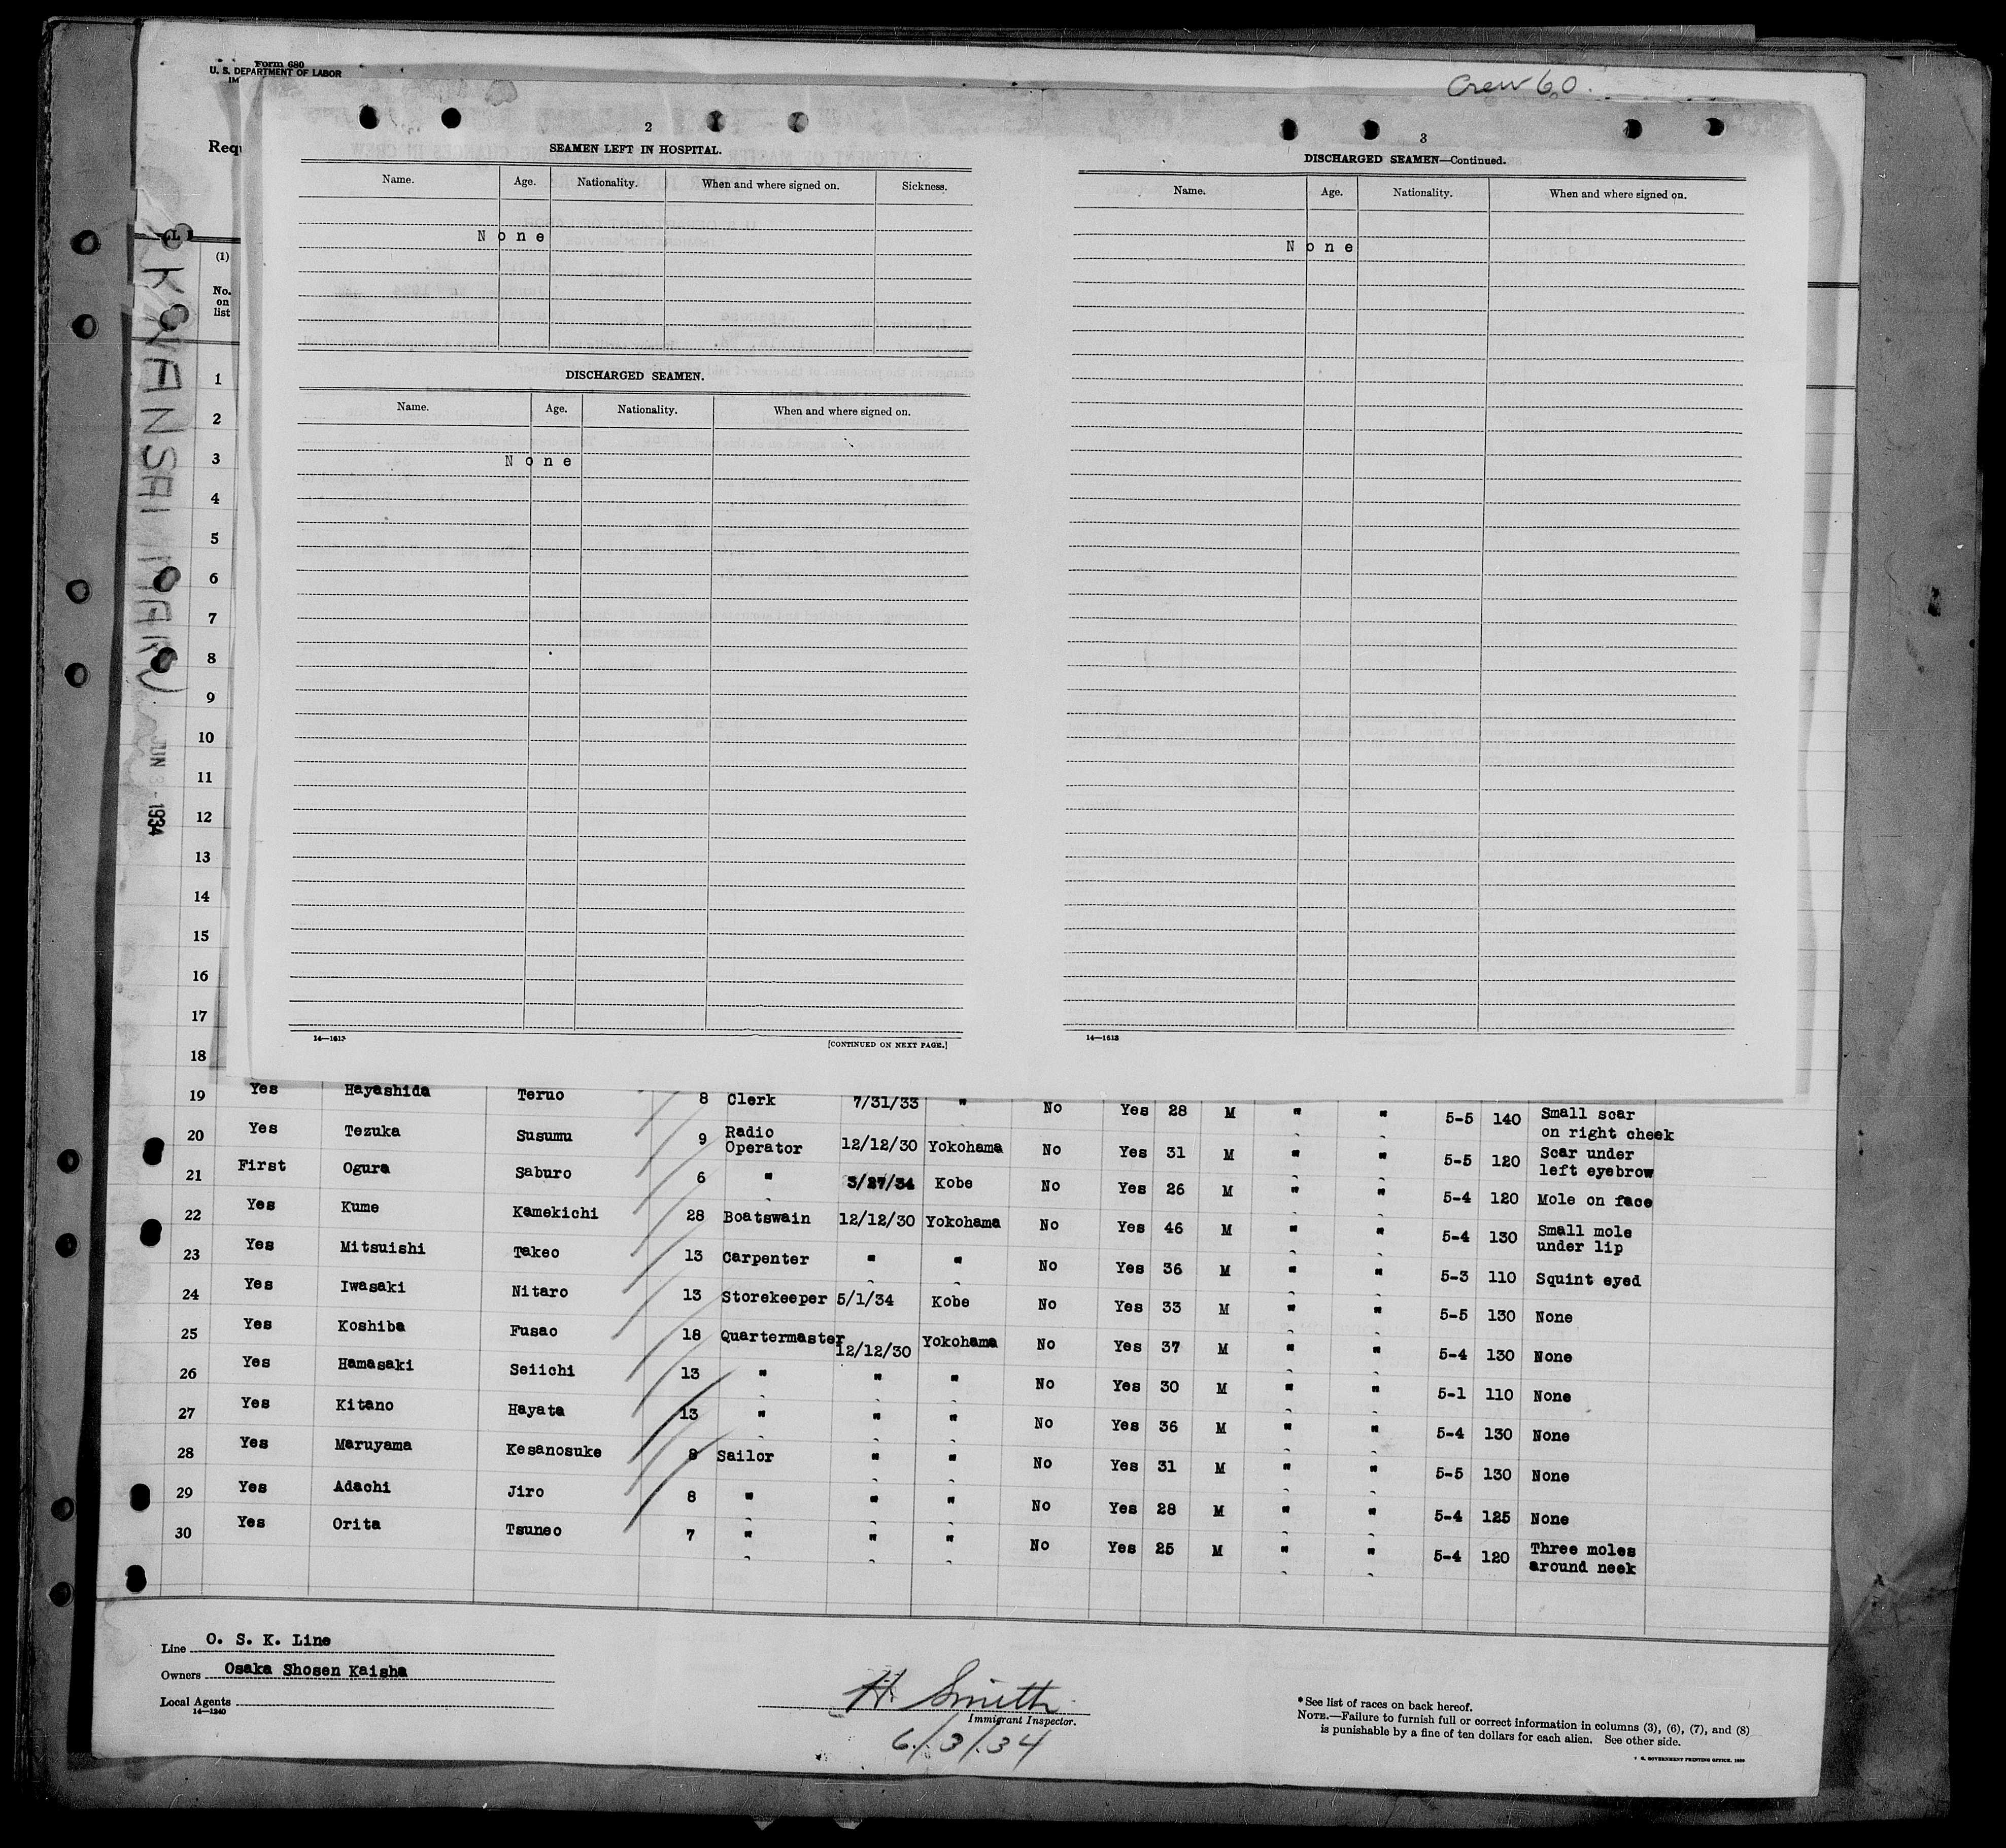 Form 680
U. S. DEPARTMENT OF LABOR
Crew 60.
KWANSAI MARU
JUN 3 - 1934
(1)
No.
on
list
1
2
3
4
5
6
7
8
9
10
11
12
13
14
15
16
17
18
2
SEAMEN LEFT IN HOSPITAL.
Name. Age. Nationality. When and where signed on. Sickness.
None
DISCHARGED SEAMEN.
Name. Age. Nationality. When and where signed on.
None
14—1613
[CONTINUED ON NEXT PAGE.]
3
DISCHARGED SEAMEN—Continued.
Name. Age. Nationality. When and where signed on.
None
14—1613
19 Yes Hayashida Teruo 8 Clerk 7/31/33 " No Yes 28 M " " 5-5 140 Small scar on right cheek
20 Yes Tezuka Susumu 9 Radio Operator 12/12/30 Yokohama No Yes 31 M " " 5-5 120 Scar under left eyebrow
21 First Ogura Saburo 6 " 3/27/34 Kobe No Yes 26 M " " 5-4 120 Mole on face
22 Yes Kume Kamekichi 28 Boatswain 12/12/30 Yokohama No Yes 46 M " " 5-4 130 Small mole under lip
23 Yes Mitsuishi Takeo 13 Carpenter " " No Yes 36 M " " 5-3 110 Squint eyed
24 Yes Iwasaki Nitaro 13 Storekeeper 5/1/34 Kobe No Yes 33 M " " 5-5 130 None
25 Yes Koshiba Fusao 18 Quartermaster 12/12/30 Yokohama No Yes 37 M " " 5-4 130 None
26 Yes Hamasaki Seiichi 13 " " " No Yes 30 M " " 5-1 110 None
27 Yes Kitano Hayata 13 " " " No Yes 36 M " " 5-4 130 None
28 Yes Maruyama Kesanosuke 8 Sailor " " No Yes 31 M " " 5-5 130 None
29 Yes Adachi Jiro 8 " " " No Yes 28 M " " 5-4 125 None
30 Yes Orita Tsuneo 7 " " " No Yes 25 M " " 5-4 120 Three moles around neek
Line O. S. K. Line
Owners Osaka Shosen Kaisha
Local Agents
14—1240
H. Smith
Immigrant Inspector.
6/3/34
*See list of races on back hereof.
NOTE.—Failure to furnish full or correct information in columns (3), (6), (7), and (8)
is punishable by a fine of ten dollars for each alien. See other side.
GOVERNMENT PRINTING OFFICE